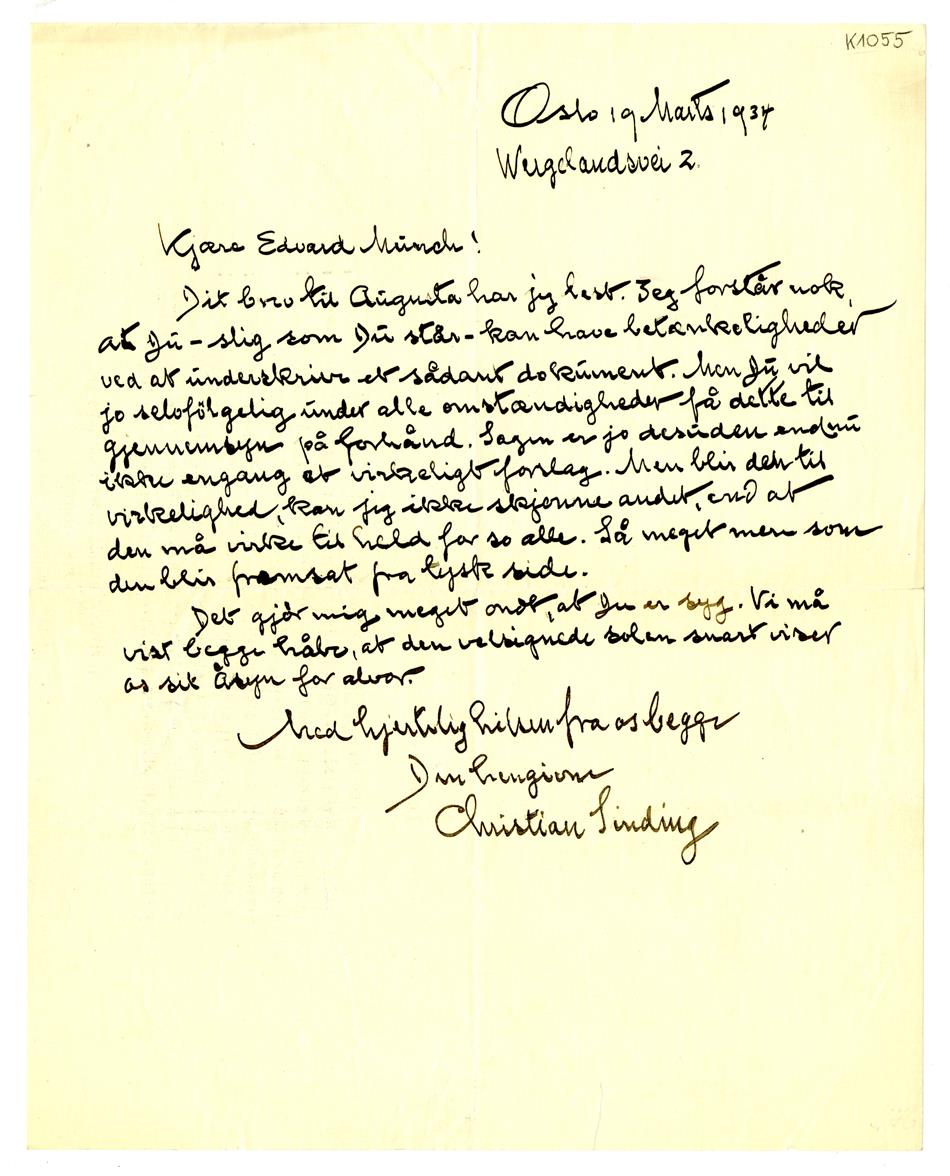 K1055
Oslo 19 Marts 1934
Wergelandsvei 2.
Kjære Edvard Munch!
Dit brev til Augusta har jeg læst. Jeg forstår nok,
at Du – slig som Du står – kan have betænkeligheder
ved at underskrive et sådant dokument. Men Du vil
jo selvfölgelig under alle omstændigheder få dette til
gjennemsyn på forhånd. Sagen er jo desuden endnu
ikke engang et virkeligt forslag. Men blir det til
virkelighed, kan jeg ikke skjönne andet, end at
den må virke til held for os alle. Så meget mere som
den blir fremsat fra tysk side.
Det gjör mig meget ondt, at Du er syg. Vi må
vist begge håbe, at den velsignede solen snart viser
os sit Åsyn for alvor.
Med hjertelig hilsen fra os begge
Din hengivne
Christian Sinding